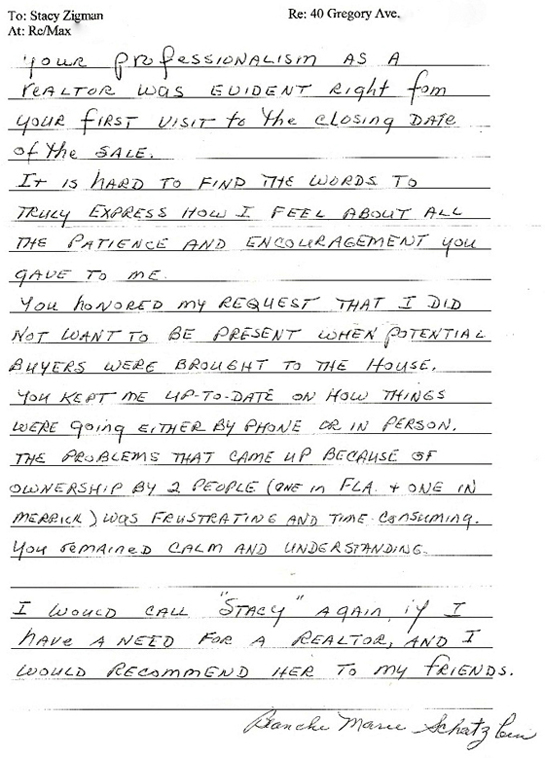 To: Stacy Zigman Re: 40 Gregory Ave.
At: Re/Max
your professionalism as a
realtor was evident right fom
your first visit to the closing date
of the sale.
It is hard to find the words to
truly express how I feel about all
the patience and encouragement you
gave to me.
You honored my request that I did
not want to be present when potential
buyers were brought to the house.
You kept me up-to-date on how things
were going either by phone or in person.
The problems that came up because of
ownership by 2 people (one in Fla. + one in
Merrick) was frustrating and time-consuming.
You remained calm and understanding.
I would call "Stacy" again, if I
have a need for a realtor, and I
would recommend her to my friends.
Blanche Marie Schatzlein